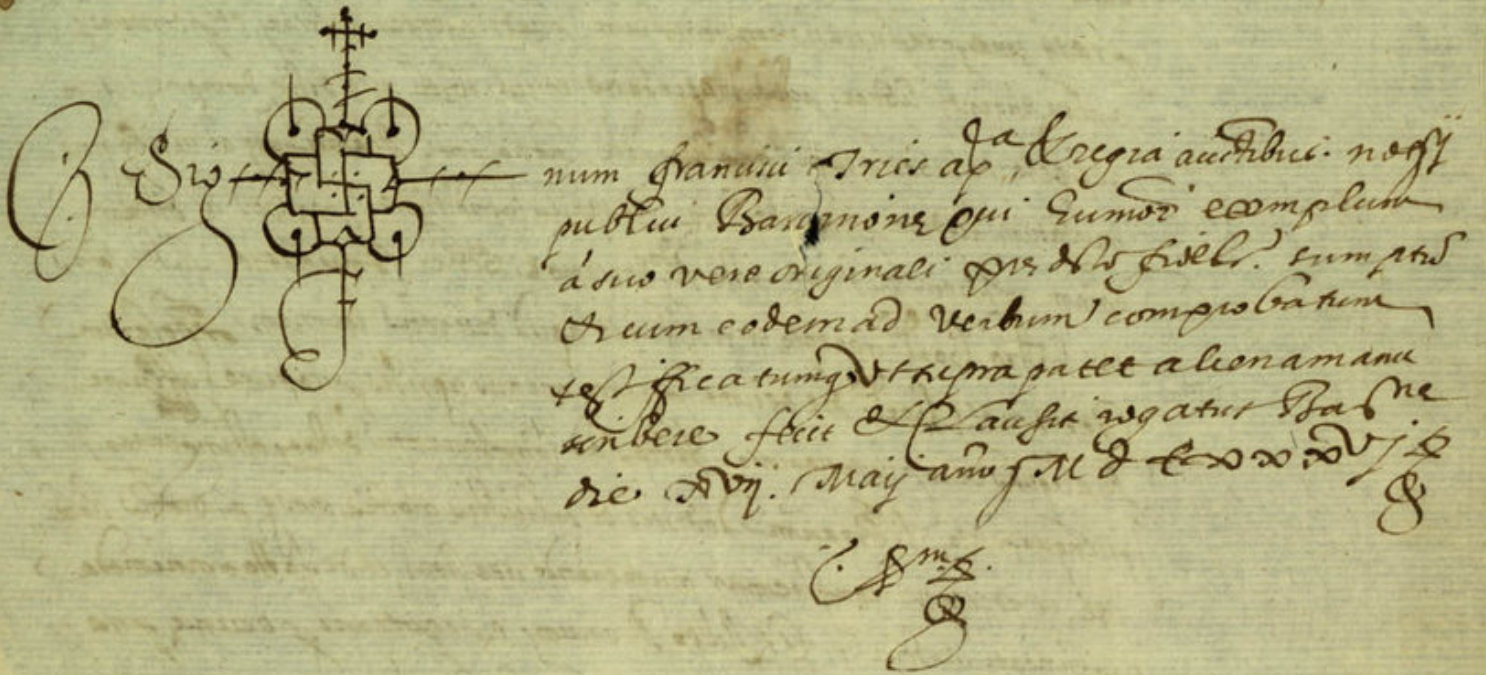 Sig num francisci Tries ap.ca & regia auctibus. nots
publici Barcinone qui huiusmoi exemplum
á suo vero originali pre dicto fideler. sumptū
& cum eodem ad verbum comprobatum
testificatumq̨ ut supra patet aliena manu
scribere fecit & clausit rogatus Barne
die xvij. Maij anno M d